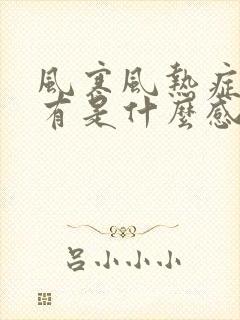 風寒風熱症
有是什麼感
呂小小小